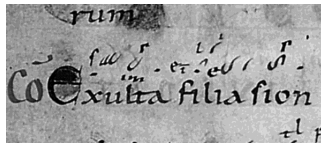 rum
Co Exulta filia sion